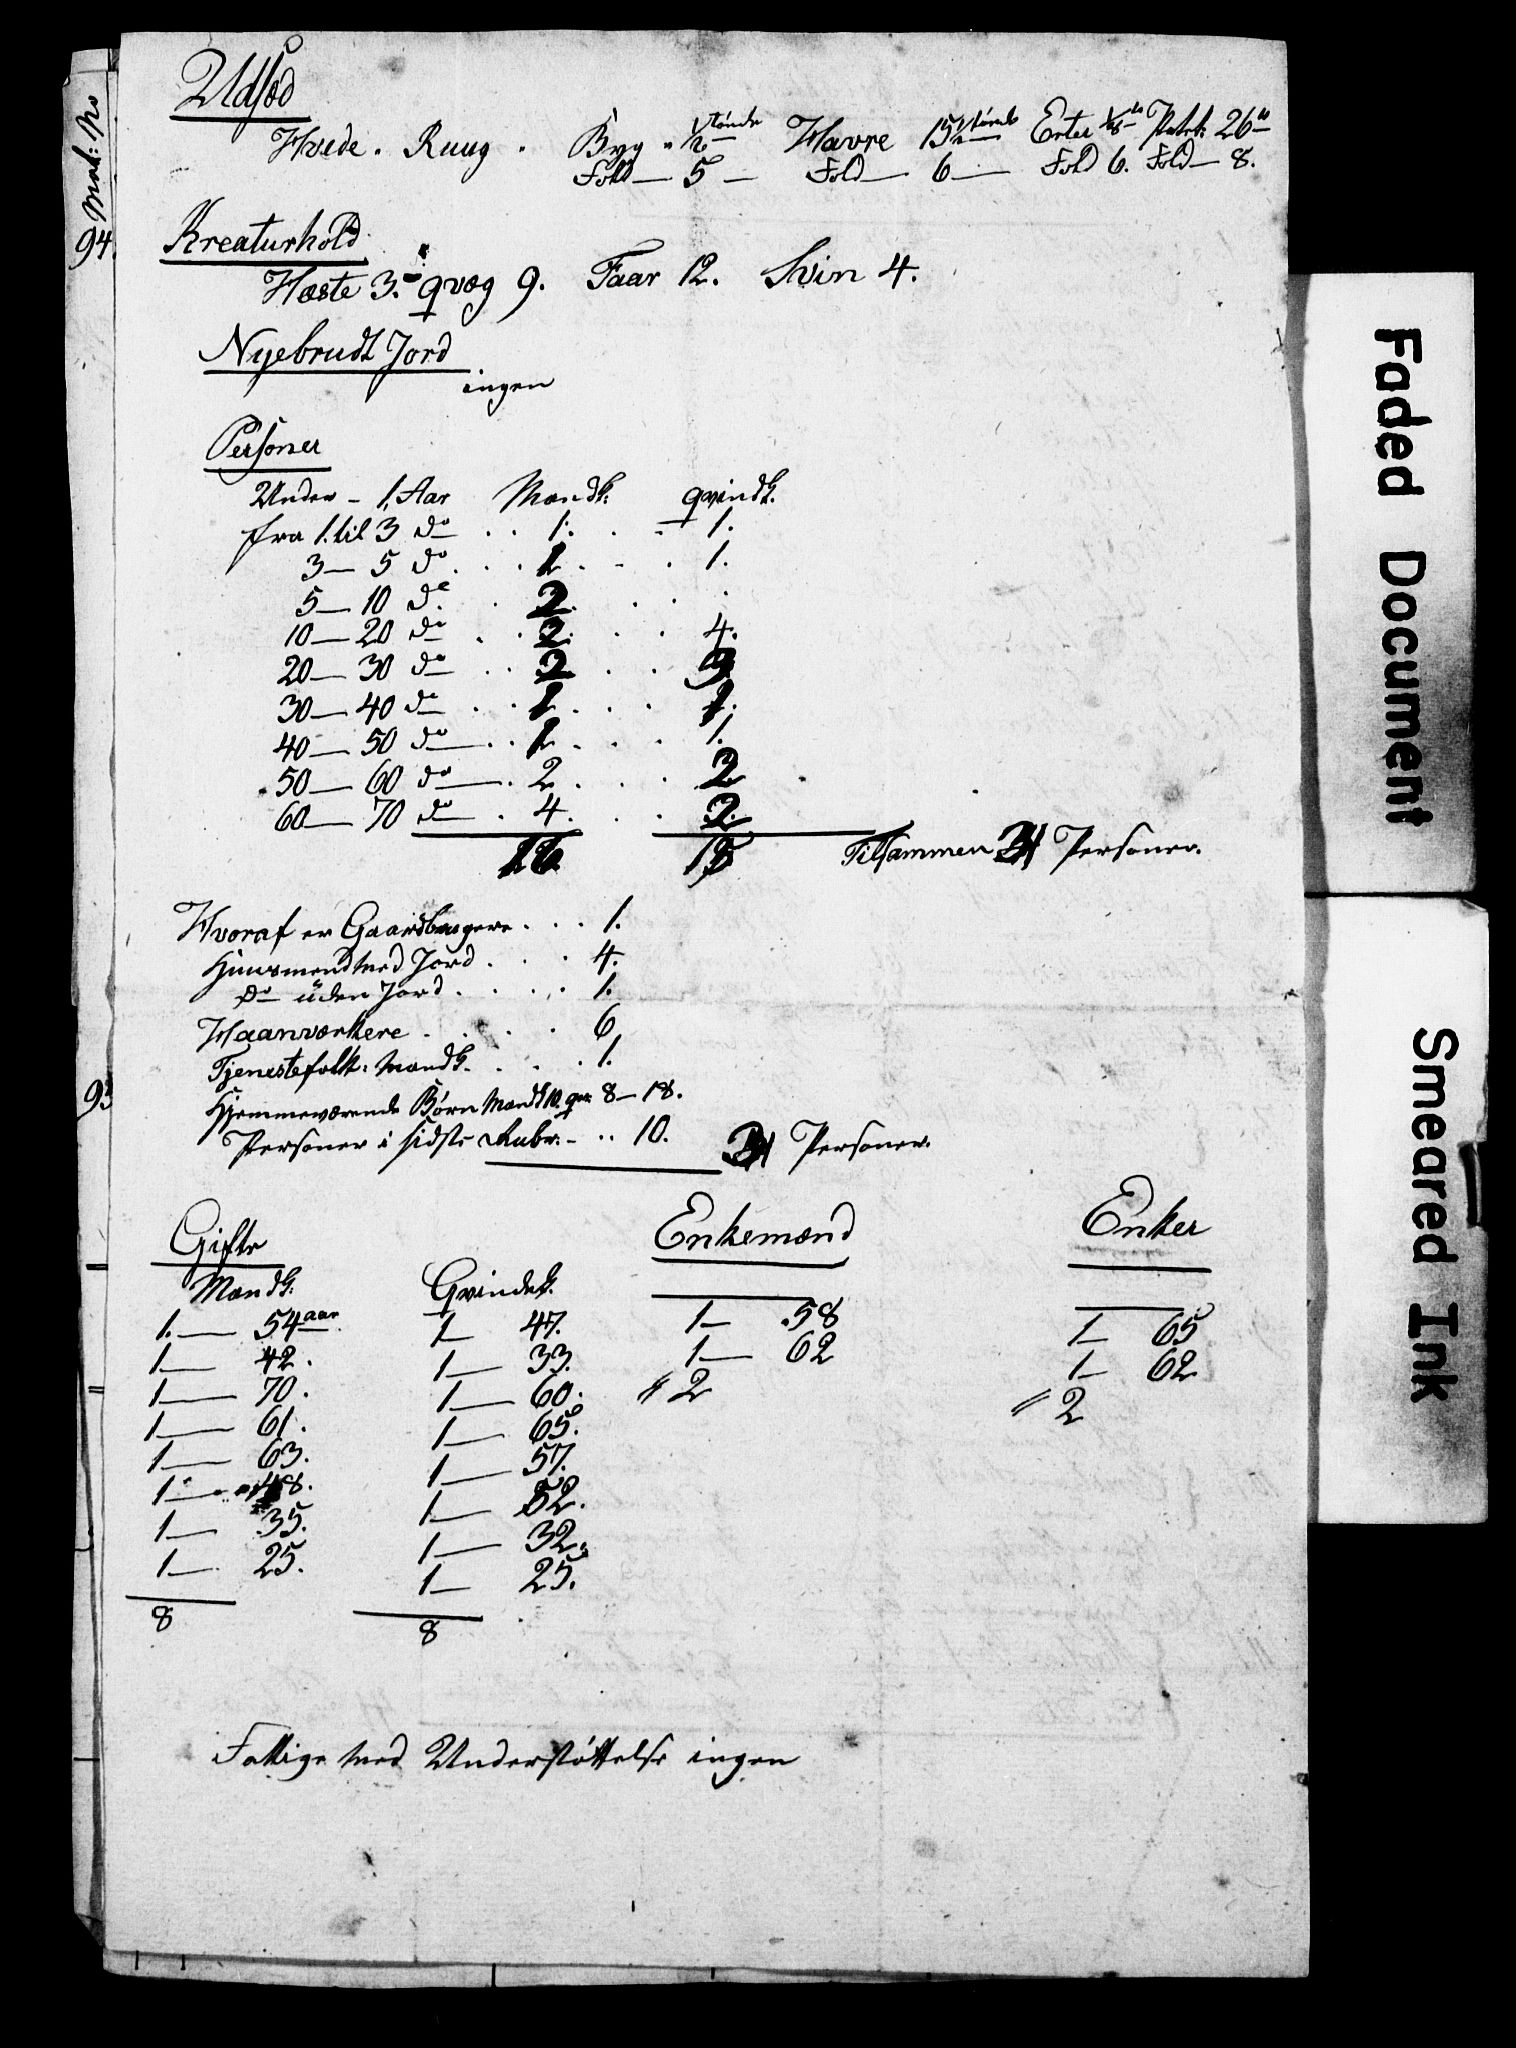 Udsæd
Hvede . Ruug . Byg " ½ tønde Havre 15½ tønde Erter ⅛ do Potet: 26 to
Fold — 5 — Fold — 6 — Fold 6. Fold — 8.
Mat: No
94.
Kreaturhold
Hæste 3. qvæg 9. Faar 12. Svin 4.
Nyebrudt Jord
ingen
Personer
Under - 1 Aar Mandk: qvindk.
fra 1. til 3 do . . 1. . . 1.
3 — 5 do . . . 1 . . . 1.
5 — 10 do . 2. . . .
10 — 20 do . . 2. . . 4.
20 — 30 do . . 2 . . 3
30 — 40 do . . 1 . . . 1.
40 — 50 do . . 1 . . . 1.
50 — 60 do . 2 . . . 2
60 — 70 do . 4. . . 2.
16 15 Tilsammen 31 Personer.
Hvoraf er Gaardbrugere . . . 1.
Huusmend med Jord . . . 4.
do uden Jord . . . . 1.
Haanværkere . . . . 6
Tjenestefolk: Mandk. . . . 1.
93
Hjemmeværende Børn Mandk 10. qv: 8 — 18.
Personer i sidste Rubr: - . . 10. 31 Personer.
Gifte Enkemænd Enker
Mandk: Qvindek.
1. — 54 aar 1 — 47. 1 — 58 1 — 65
1 — 42. 1 — 33. 1 — 62 1 — 62
1 — 70. 1 — 60. " 2 " 2
1 — 61. 1 — 65.
1 — 63. 1 — 57.
1 — 48. 1 — 52.
1 — 35. 1 — 32.
1 — 25. 1 — 25.
8 8
Fattige med Understøttelse ingen
Faded Document
Smeared Ink